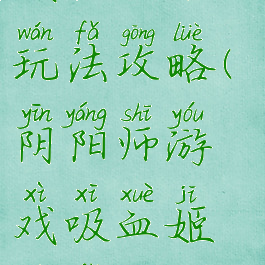 wán fǎ gōng lüè
玩法攻略(
yīn yáng shī yóu
阴阳师游
xì xī xuè jī
戏吸血姬